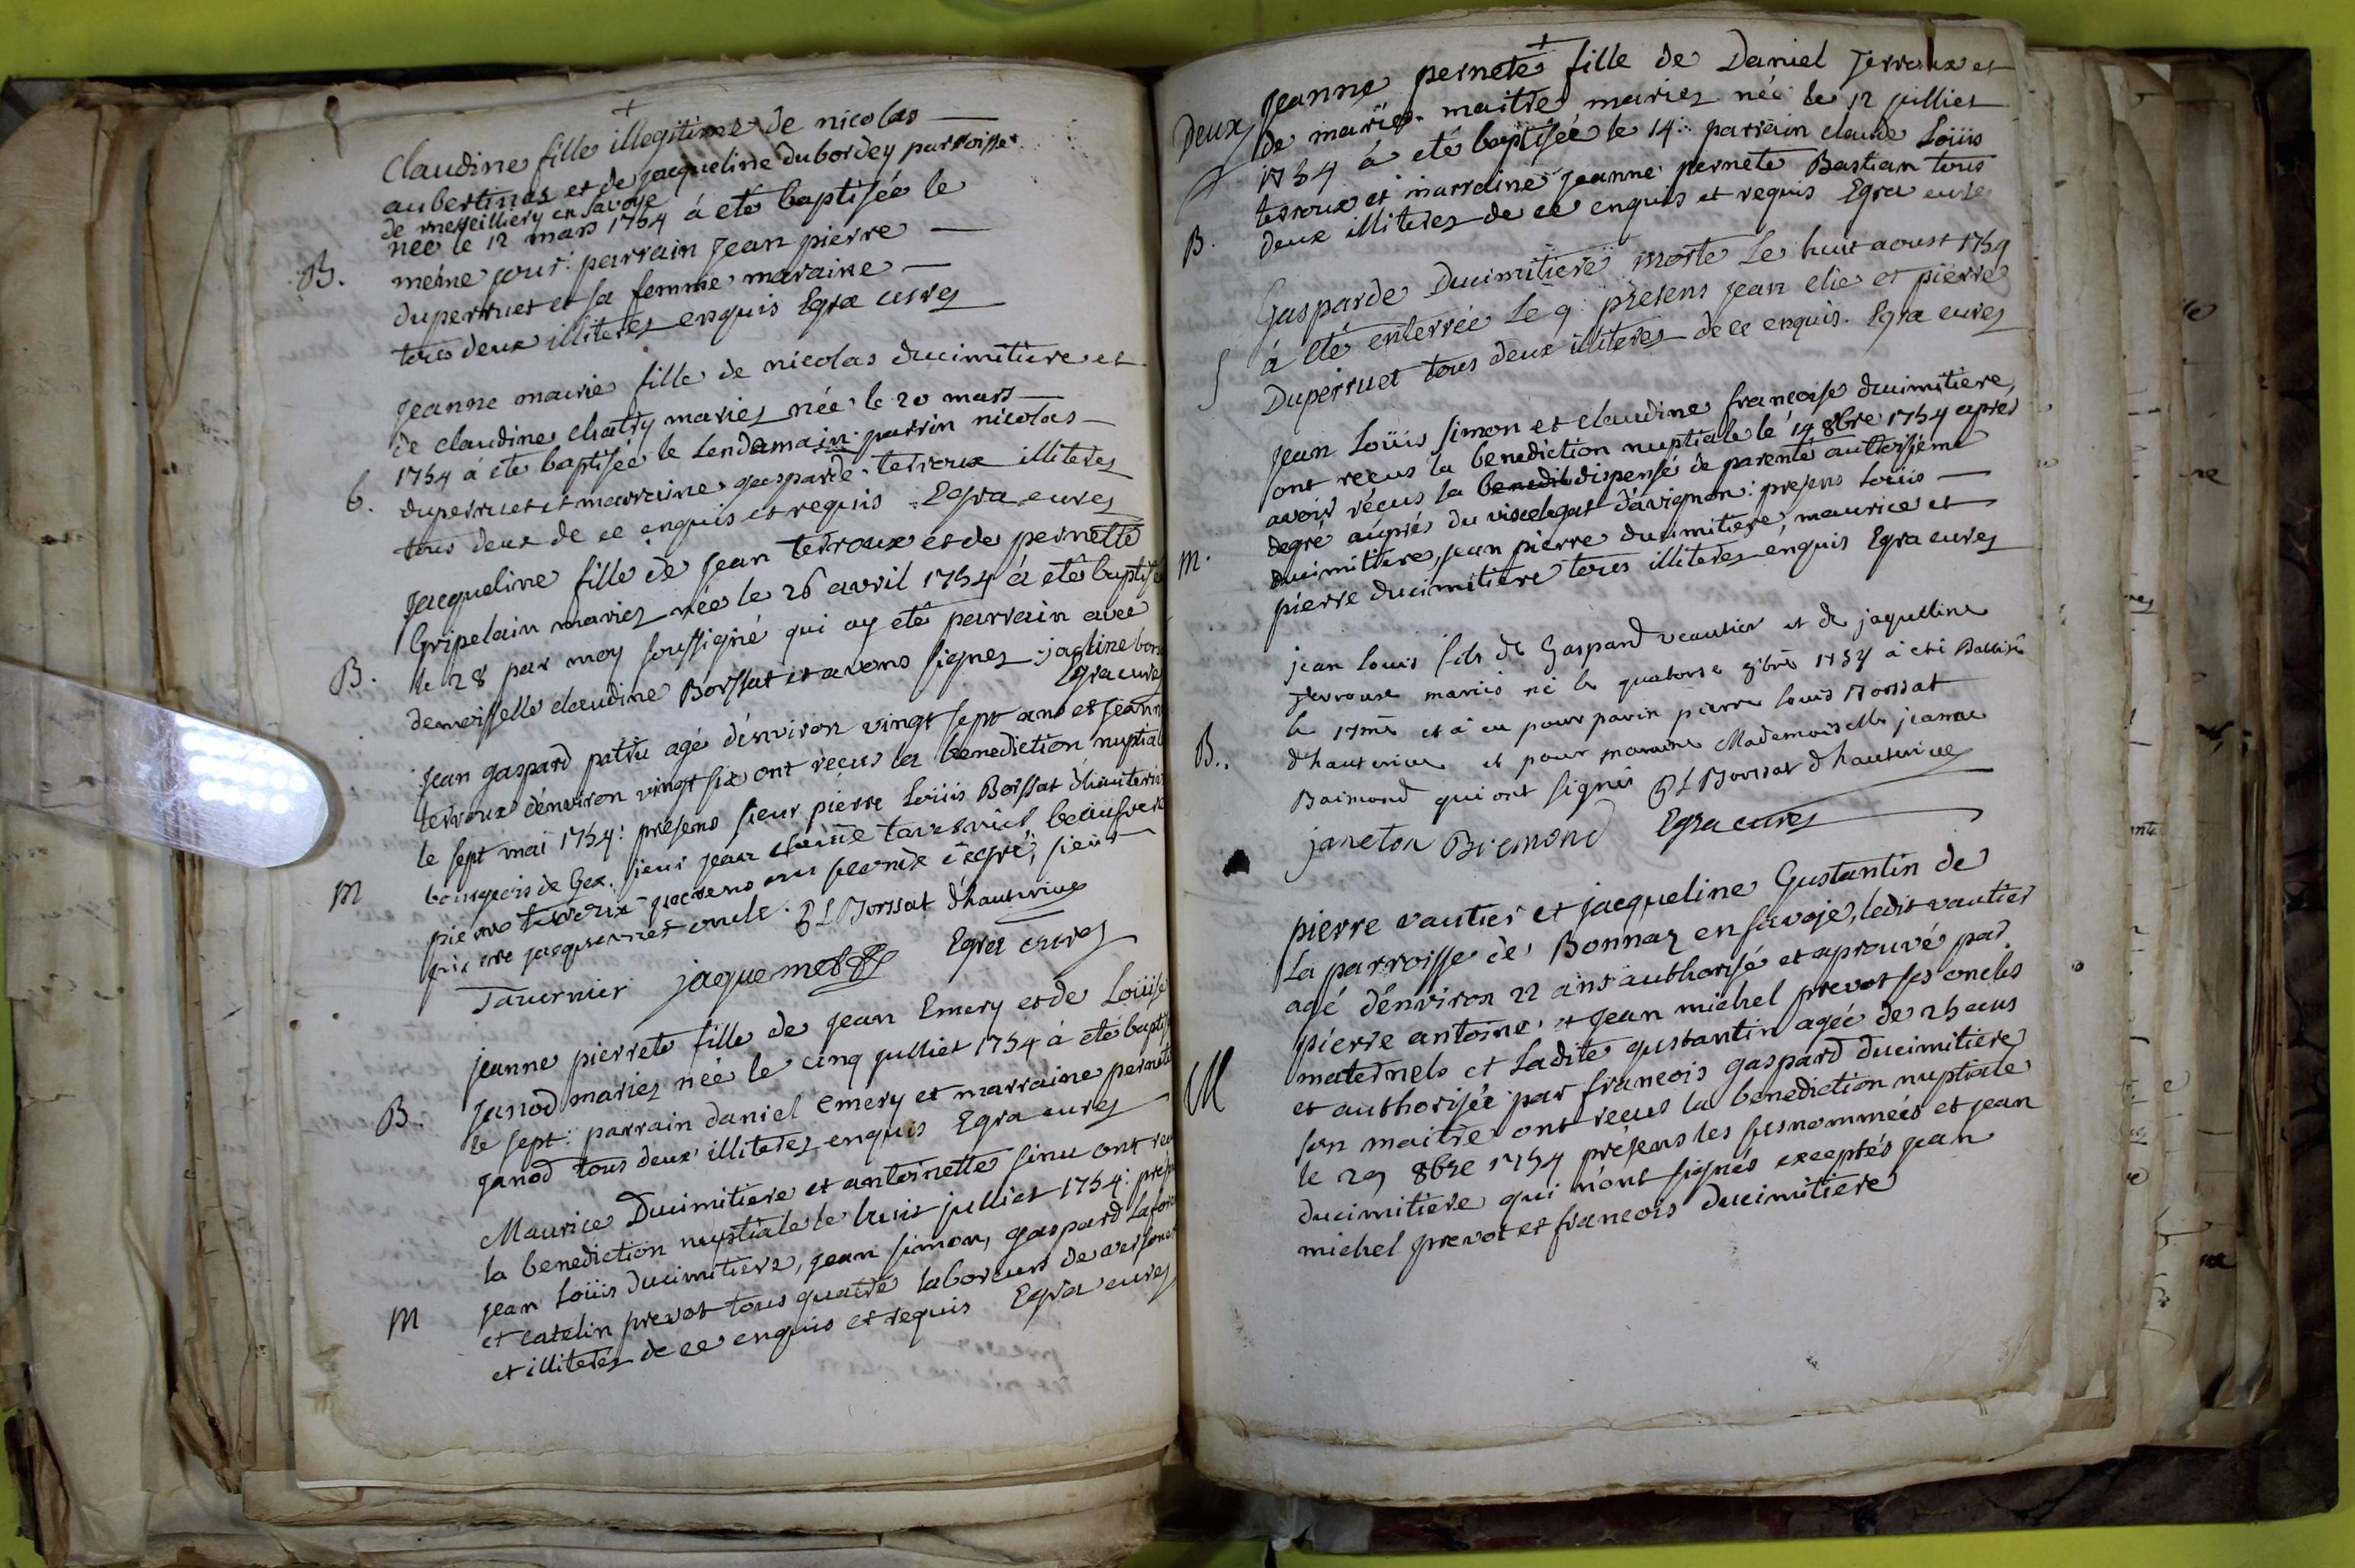 +
Claudine fille illegitime de nicolas
aubertinas et de jacqueline dubordey parroisse
de megeilliery en savoye
née le 12 mars 1754 à eté baptisée le
B. même jour: parrain jean pierre
duperruet et sa femme maraine
tous deux illiteres enquis Egra curez
jeanne marie fille de nicolas ducimitiere et
de claudine chatry mariez née le 20 mars
1754 à eté baptisée le Lendamain: parrin nicolas
b. duperruet et marraine gasparde terroux illiteres
tous deux de ce enquis et requis Egra curez
Jacqueline fille de jean terroux et de pernette
Gripelain mariez née le 26 avril 1754 à eté baptisé
B. le 28 par moy soussigné qui ay eté parrain avec
demoisselle claudine Borssat et avons signez jaqline bors
Egra curez
Jean gaspard patru agé d'environ vingt sept ans et jeann
terroux d'environ vingt six ont reçus la benediction nuptial
le sept mai 1754: presens sieur pierre Loüis Borssat d'hauteriv
M bourgeois de Gex. sieur jean claude tavernier beaufrere
pierre terroux germains au second degré, sieur
pierre jacquemet oncle. P L Borssat d'hauterive
Tavernier jaquemet Egra curez
jeanne pierrete fille de jean Emery et de Loüise
Janod mariez née le cinq julliet 1754 à eté baptis
B. le sept: parrain daniel Emery et marraine pernete
janod tous deux illiteres enquis Egra curez
Maurice Ducimitiere et antoinette sinu ont reç
la benediction nuptiale le huit julliet 1754: presen
jean Loüis ducimitiere, jean simon, gaspard Lafon
M et catelin prevot tous quatre laboreurs de versone
et illiteres de ce enquis et requis Egra curez
+
jeanne pernete fille de Daniel Jerroux et
Deux de marie maitre mariez née le 12 julliet
1754 à eté baptisée le 14: parrain claude Loüis
terroux et marraine jeanne pernete Bastian tous
B. deux illiteres de ce enquis et requis Egra curé
Gasparde Ducimitiere morte Le huit aoust 1754
à eté enterrée Le 9: presens jean elie et pierre
S Duperruet tous deux illiteres de ce enquis. Egra curez
Jean Loüis simon et claudine francoise ducimitiere,
ont reçus la benediction nuptiale le 14 8bre 1754 aprés
avoir reçus la benedit dispense de parenté au troisieme
degré auprés du vicelegat d'avignon: presens Loüis
M. ducimitiere, jean pierre ducimitiere, maurice et
pierre ducimitiere tous illiteres enquis Egra curez
jean Louis fils de Gaspard veautier et de jaquelline
Jerroux mariés né le quatorse 8bre 1754 à eté Battisé
le 17me et à eu pour parin pierre Louis Borssat
B. d'hauterive et pour maraine Mademoiselle jeanne
Baimond qui ont signés P L Borssat d'hauterive
janeton Biemond Egra curez
pierre vautier et jacqueline Gustantin de
La parroisse de Bonnaz en savoje, ledit vautier
agé d'environ 22 ans authorisé et aprouvé par
pierre antoine et jean michel prevot ses oncles
maternels et Ladite gustantin agée de 25 ans
M et authorisée par francois gaspard ducimitiere
son maitre ont reçus la benediction nuptiale
le 29 8bre 1754 presens les susnommées et jean
ducimitiere qui n'ont signés exceptés jean
michel prevot et francois ducimitiere